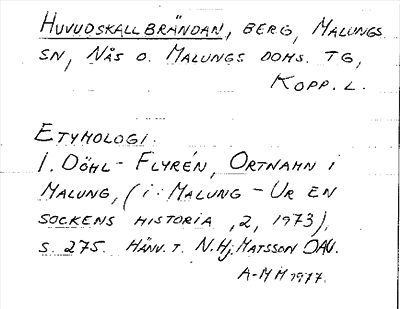 HUVUDSKALLBRÄNDAN, BERG, MALUNGS
SN, NÅS O. MALUNGS DOMS. TG,
KOPP. L.
ETYMOLOGI.
I. DÖHL - FLYRÉN, ORTNAMN I
MALUNG, (i: MALUNG - UR EN
SOCKENS HISTORIA, 2, 1973),
S. 275. HÄNV. T. N. Hj. MATSSON DAU.
A-MM 1977.